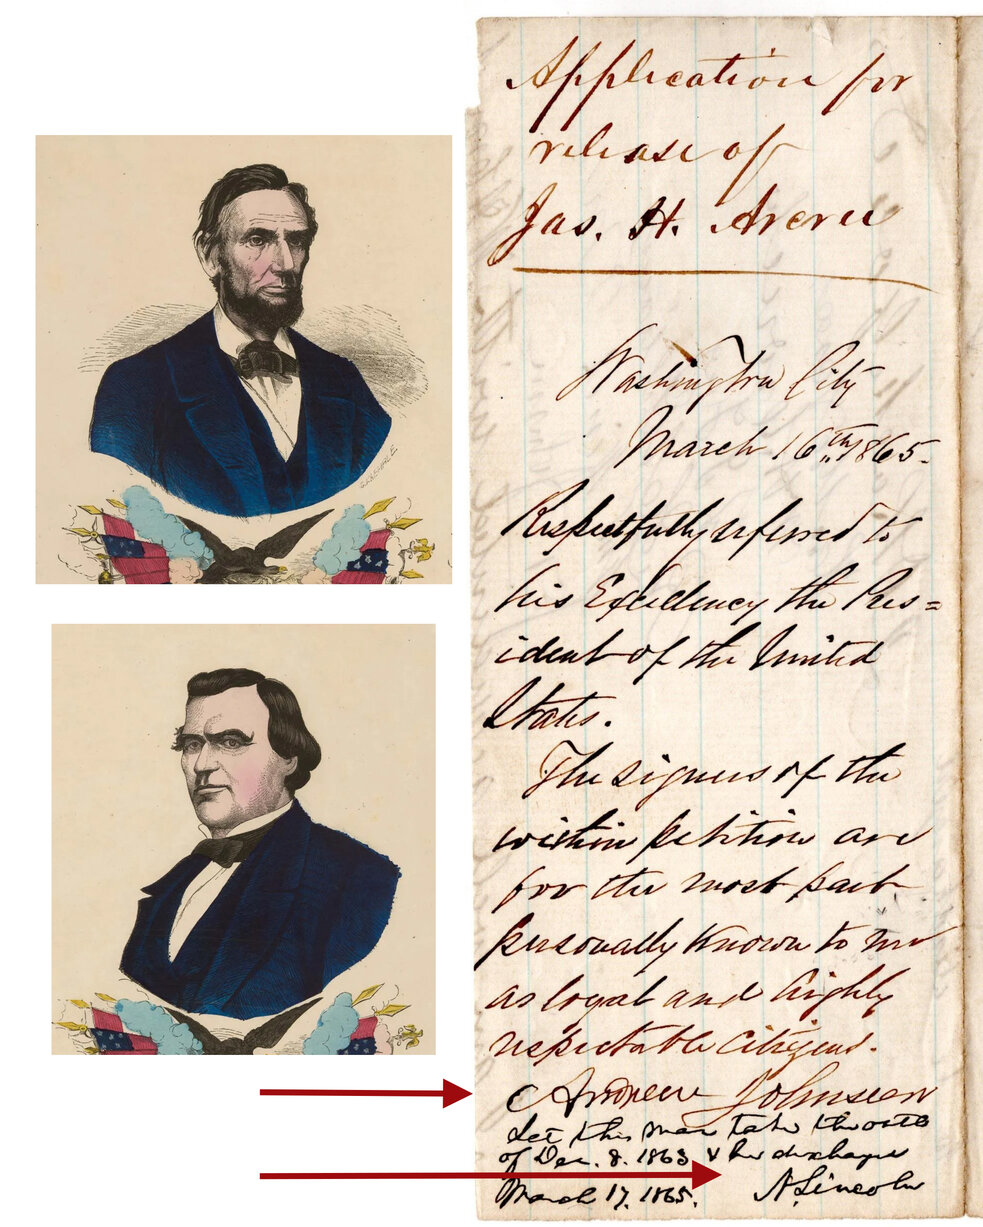 Application for
release of
Jas. H.
Washington City
March 16th 1865.
Respectfully referred to
his Excellency the Pres=
ident of the United
States.
The signers of the
within petition are
for the most part
personally known to me
as loyal and highly
respectable citizens.
Andrew Johnson
Let this man take the oath
of Dec. 8. 1863 & be discharged
March 17, 1865. A. Lincoln